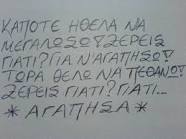 ΚΑΠΟΤΕ ΗΘΕΛΑ ΝΑ
ΜΕΓΑΛΩΣΩ! ΞΕΡΕΙΣ
ΓΙΑΤΙ? ΓΙΑ Ν'ΑΓΑΠΗΣΩ!
ΤΩΡΑ ΘΕΛΩ ΝΑ ΠΕΘΑΝΩ!
ΞΕΡΕΙΣ ΓΙΑΤΙ? ΓΙΑΤΙ...
* ΑΓΑΠΗΣΑ *